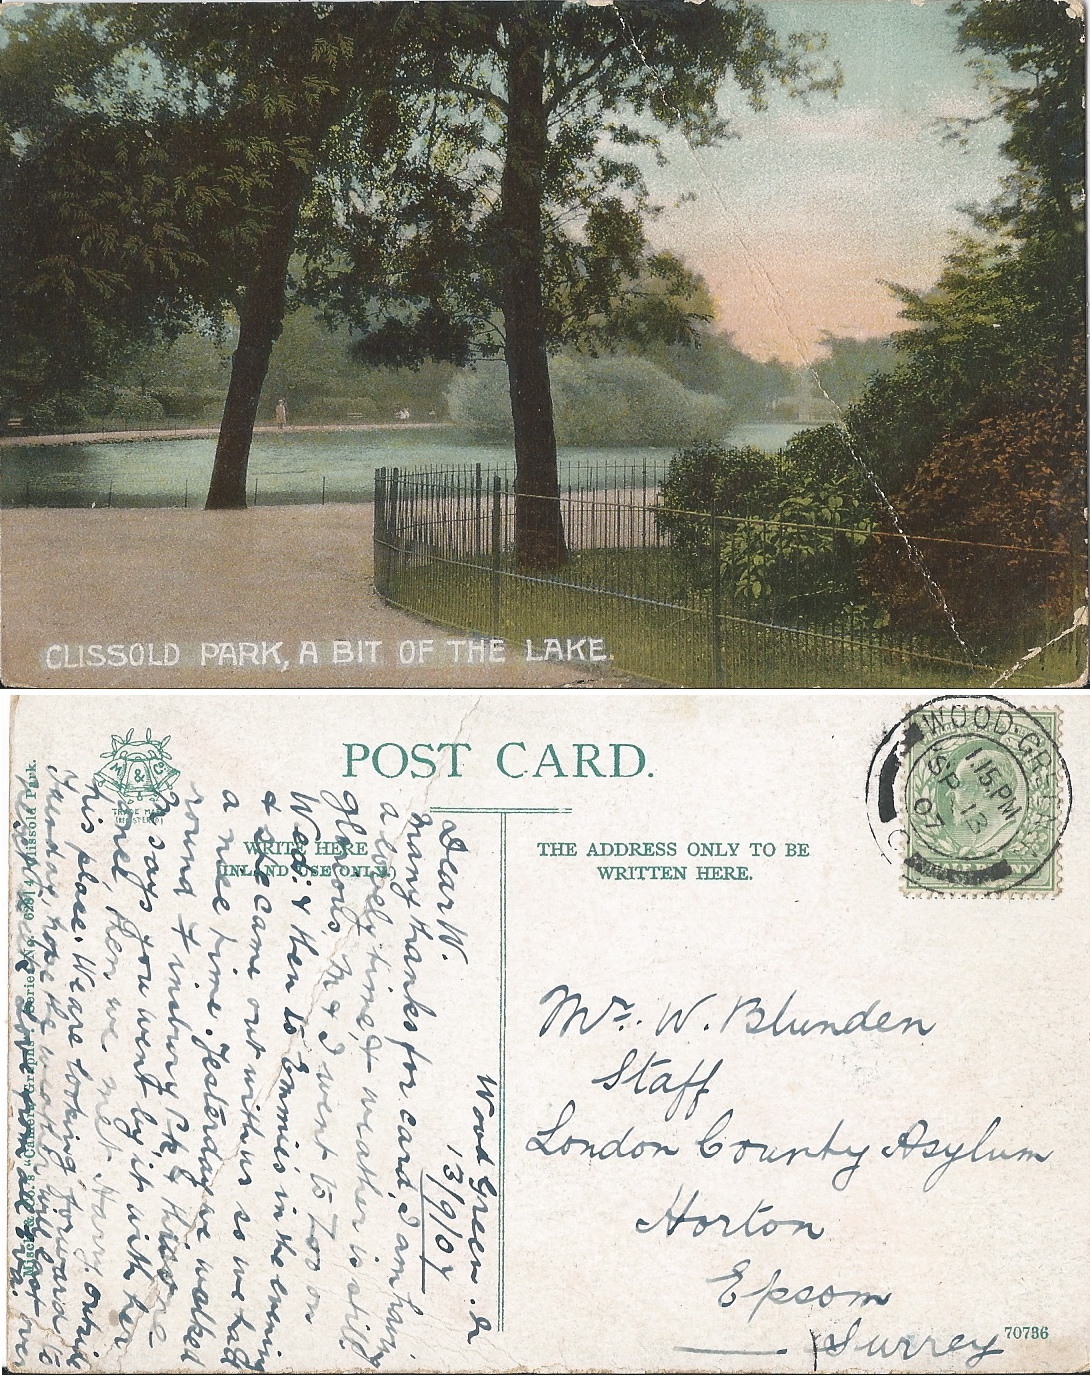 CLISSOLD PARK, A BIT OF THE LAKE.
POST CARD.
M & Co
TRADE MARK
WRITE HERE
(INLAND USE ONLY.)
THE ADDRESS ONLY TO BE
WRITTEN HERE.
WOOD-GREEN
1 15.PM
SP 13
07
Wood Green. N
13/9/07
Dear W.
Many thanks for card, I am having
a lovely time, & weather is still
glorious, M & I went to Zoo on
Wed: & then to Emmies in the evening
& she came out with us so we had
a nice time. Yesterday we walked
round Finsbury Pk, & this one
M says you went by it with her
once, then we met Harry outside
his place. We are looking forward to
Sunday, hope the weather will last over
love from all
Mr. W. Blunden
Staff
London County Asylum
Horton
Epsom
Surrey
Misch & Co.'s "Camera Graphs" Series No. 628/4 Clissold Park.
70736